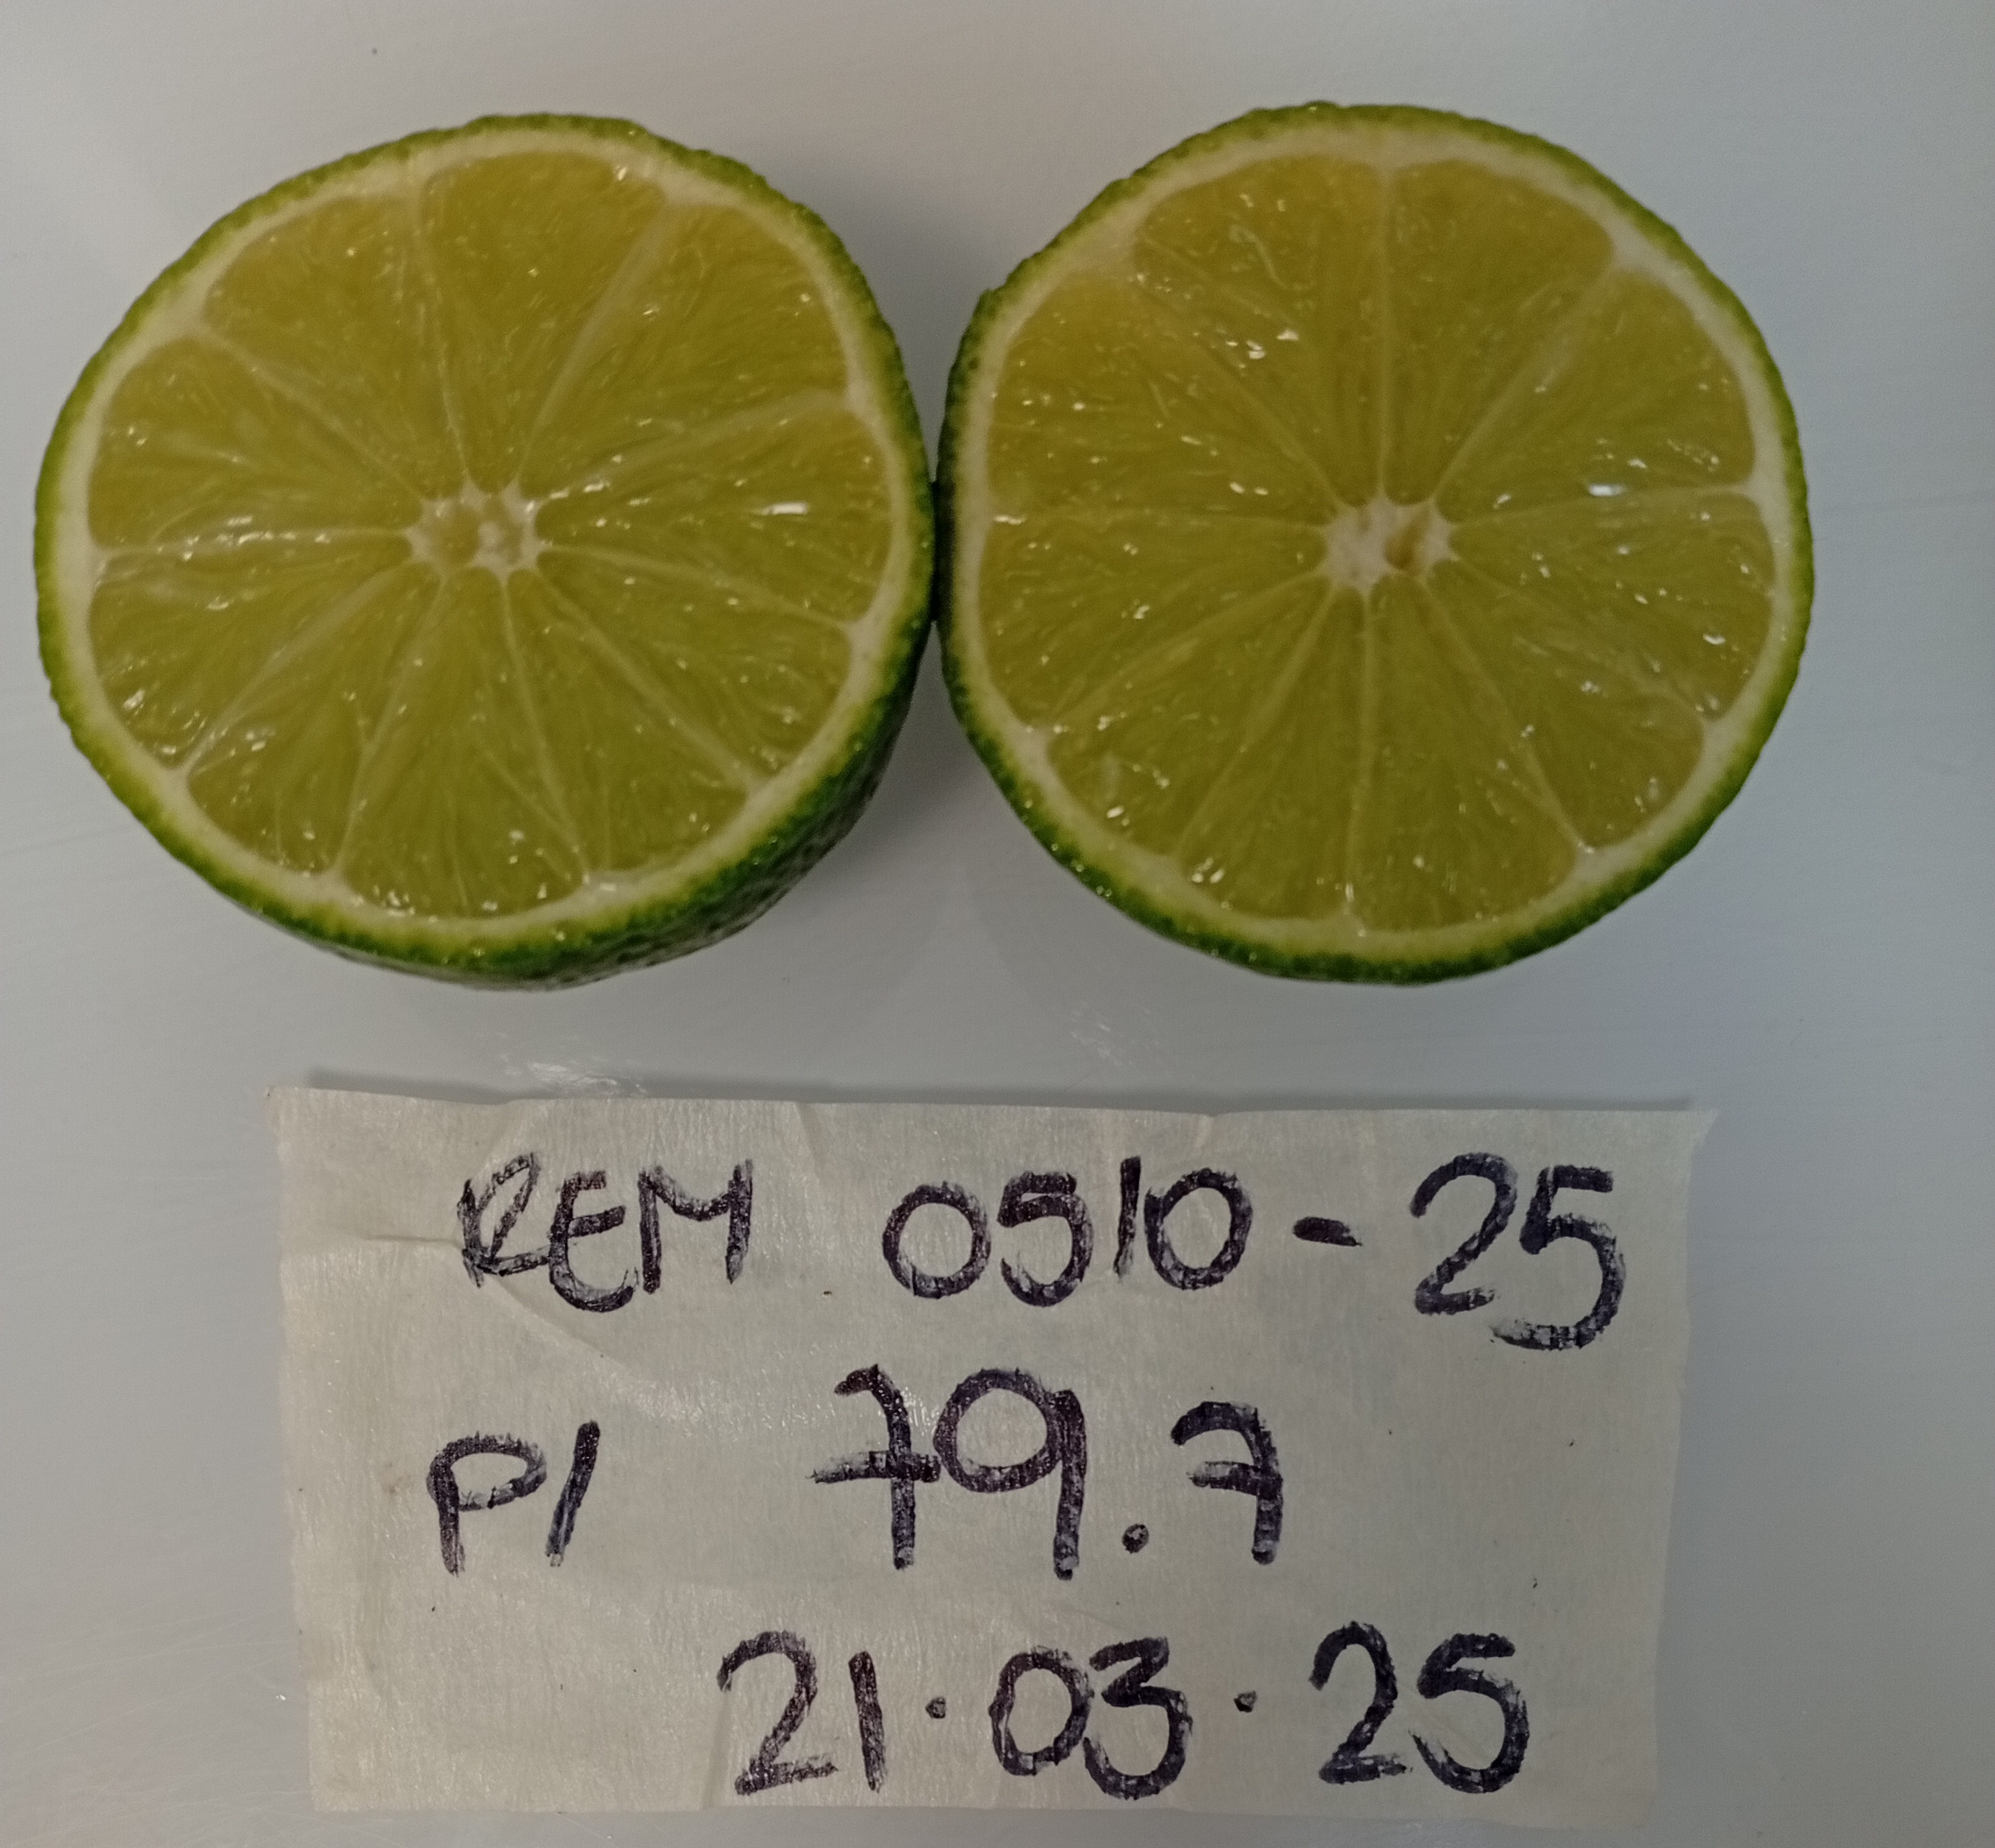 REM 0510-25
P/ 79.7
21.03.25